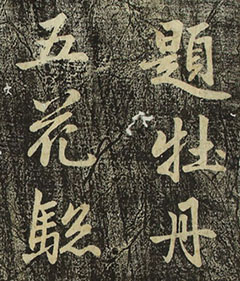 題牡丹
五花驄